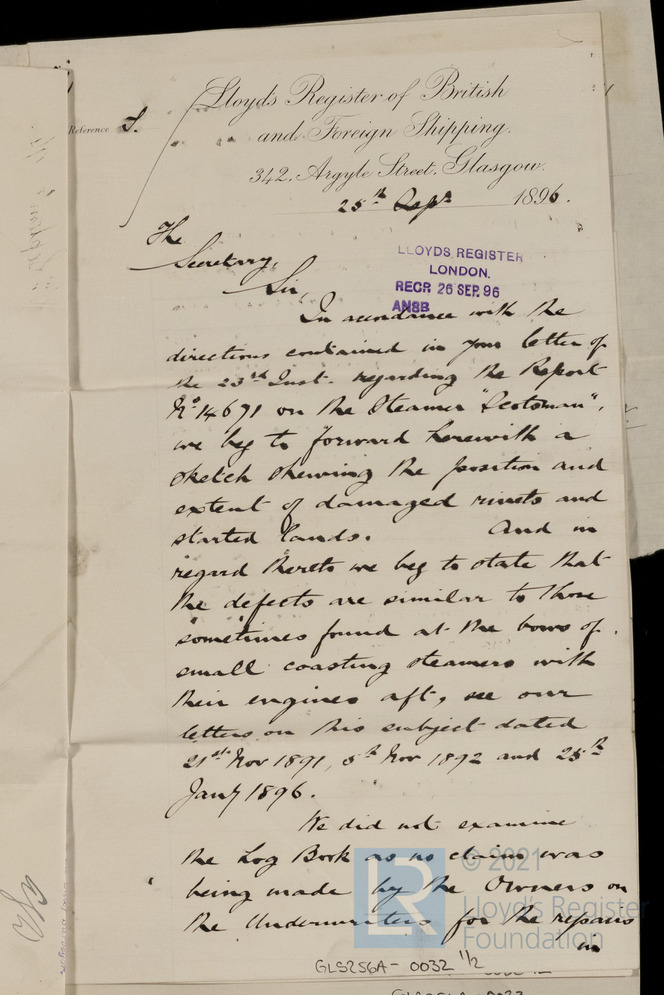 Lloyd's Register of British
and Foreign Shipping.
Reference S.
342, Argyle Street, Glasgow.
25th Sept 1896.
The
Secretary,
Sir,
LLOYDS REGISTER
LONDON.
RECR 26 SEP. 96
ANSB
In accordance with the
directions contained in your letter of
the 23rd Inst. regarding the Report
No 14671 on the Steamer "Scotsman",
we beg to forward herewith a
sketch shewing the position and
extent of damaged rivets and
started lands. And in
regard thereto we beg to state that
the defects are similar to those
sometimes found at the bows of
small coasting steamers with
their engines aft, see our
letters on this subject dated
21st Nov 1891, 5th Nov 1892 and 25th
Jany 1896.
We did not examine
the Log Book as no claim was
being made by the Owners on
the Underwriters for the repairs
in
LR © 2021
Lloyd's Register
Foundation
GLS256A - 0032 1/2